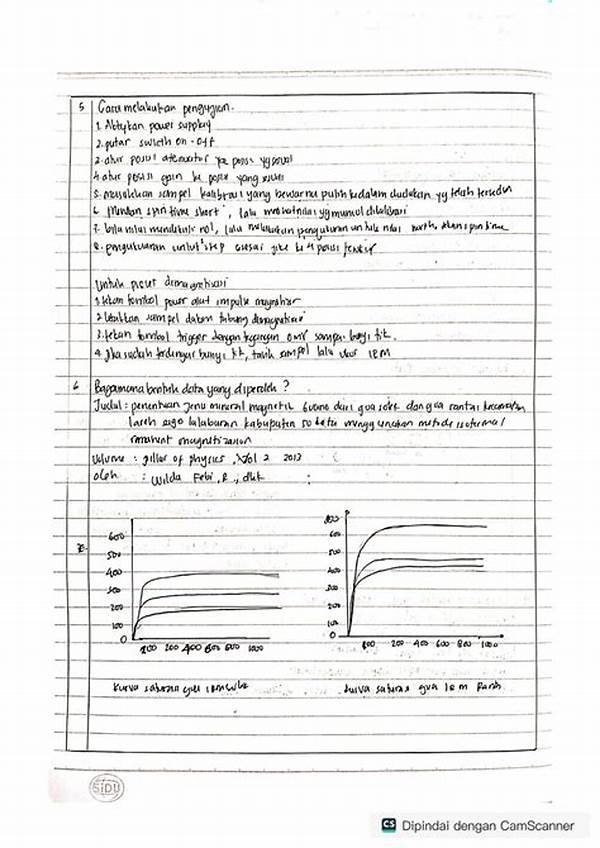 5 Cara melakukan pengujian.
1. Aktifkan power supplay
2. putar switch on-off
3. atur posisi atenuator ke posisi yg sesuai
4. atur posisi gain ke posisi yang sesuai
5. masukkan sampel kalibrasi yang bewarna putih kedalam dudukan yg telah tersedia
6. spin time short, lalu nilai yg muncul
7. bila nilai mendekati nol, lalu melakukan pengukuran untuk nilai spin time
8. pengukuran untuk step sesuai ke posisi
Untuk demagnetisasi
1. tekan tombol power alat impulse
2. letakkan sampel dalam tabung demagnetisasi
3. tekan tombol trigger dengan tegangan sampai bunyi tik.
4. Jika sudah terdengar bunyi tik, tarik sampel lalu ukur IRM
6 Bagaimana bentuk data yang diperoleh ?
Judul : penentuan jenis mineral magnetik guano dari gua solek dan gua rantai kecamatan
lareh sago halaban kabupaten 50 kota menggunakan metode isotermal
remanent magnetization
Volume : pillar of physics, Vol 2 2013
oleh : Wilda Febi, R., dkk :
600
500
400
300
200
100
0
200 200 400 600 800 1000
kurva saturasi gua
600
500
400
300
200
100
0
200 400 600 800 1000
kurva saturasi gua
SiDU
CS Dipindai dengan CamScanner